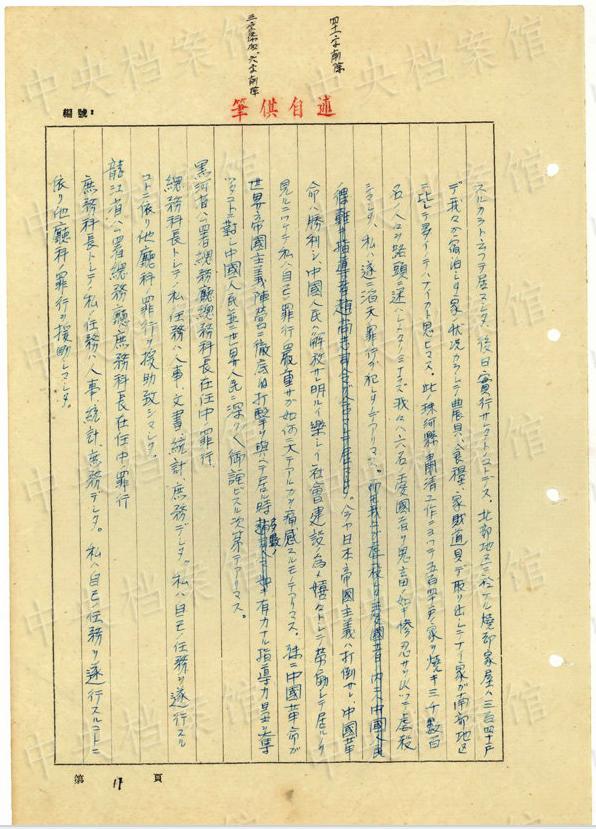 四十一字削除
三字添加、六字削除
筆供自述
編號:
スルカラトニフテ居マシタ、後日實行サレタトノコトデス。北部地区ニ於ケル燒却家屋ハ三百四十戸
デ我々ガ宿泊シタ家ノ状況カラシテ農具、食糧、家財道具ヲ取リ出シテナイ家ガ南部地区
ニ比シテ多イデハナイカト思ヒマス。此ノ珠河縣肅清工作ニヨツテ五百四十戸ノ家ヲ燒キ三千數百
名ノ人々ヲ路頭ニ迷ハシタノミナラズ我々ハ六名ノ愛國者ヲ思言ノ如キ惨忍サヲ以ツテ虐殺
シマシタ、私ハ遂ニ滔天ノ罪行ヲ犯シタノデアリマス。
今ヤ日本帝國主義ハ打倒サレ中國革
命ハ勝利シ、中國人民ハ解放サレ明ルイ樂シイ社會建設ノ為メ嬉々トシテ労働シテ居ルノヲ
見ルニツケテ私ハ自己ノ罪行ノ嚴重サガ如何ニ大デアルカヲ痛感スルモノデアリマス。殊ニ中國革命ガ
世界帝國主義陣營ニ徹底的打撃ヲ與ヘテ居ル時多數ノ有力ナル指導力量ヲ奪
ツタコトニ對シ中國人民並ニ世界人民ニ深ク御詫ビスル次第デアリマス。
黒河省公署總務廳總務科長在任中ノ罪行
總務科長トシテノ私ノ任務ハ人事、文書、統計、庶務デシタ。私ハ自己ノ任務ヲ遂行スル
コトニ依リ他廳科ノ罪行ヲ援助致シマシタ。
龍江省公署總務廳庶務科長在任中ノ罪行
庶務科長トシテノ私ノ任務ハ人事、統計、庶務デシタ。私ハ自己ノ任務ヲ遂行スルコトニ
依リ他廳科ノ罪行ヲ援助シマシタ。
第 17 頁
中央档案馆